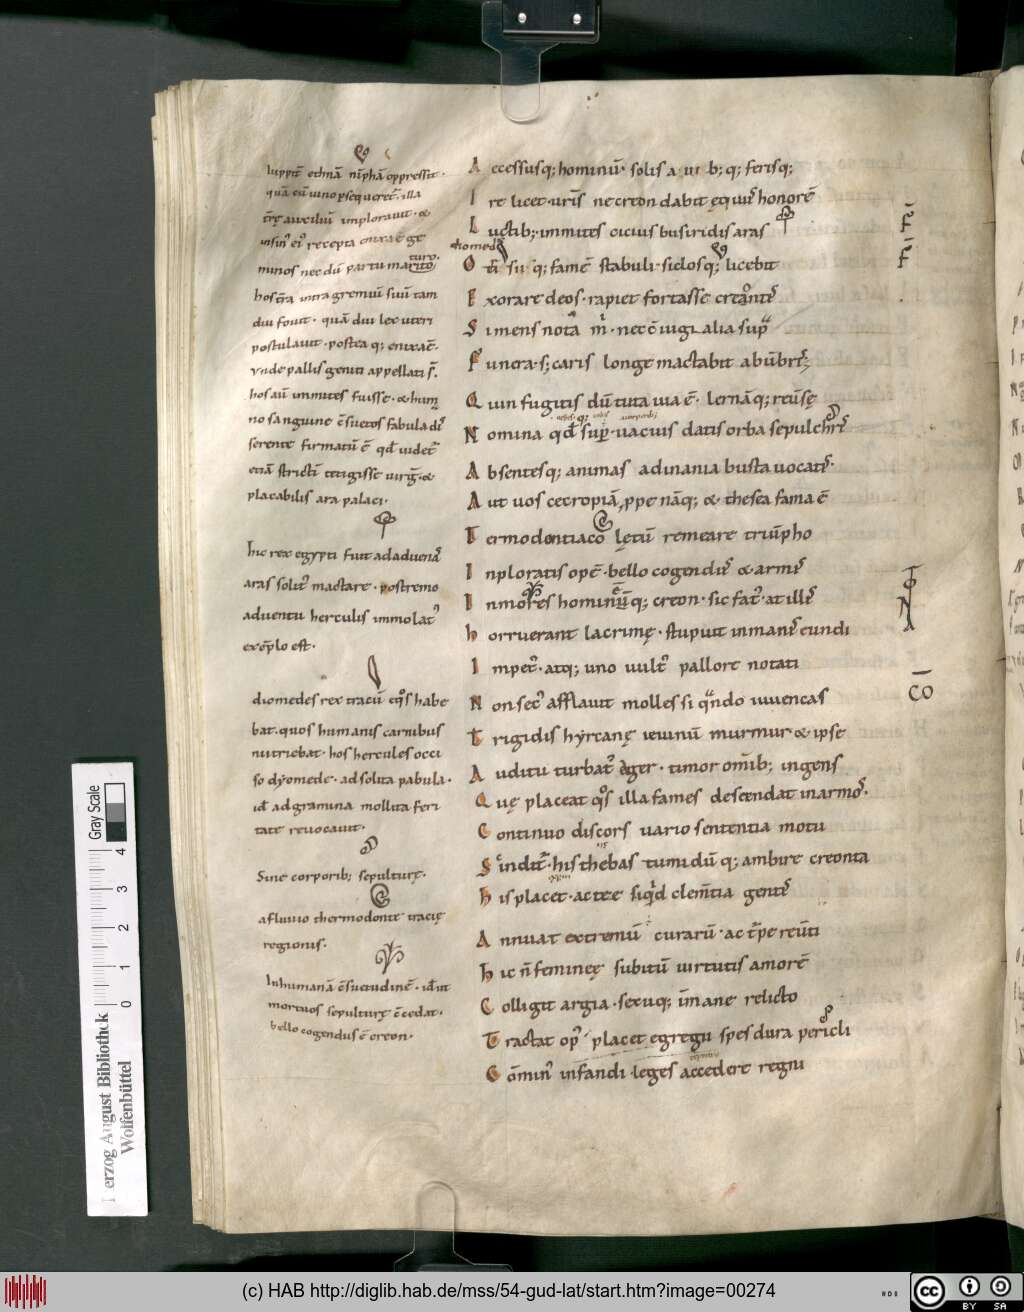 luppit̄ ethnā nīphā oppressit.
quā cū iuno ꝑsequeret᷑. illa
t̄rę auxiliū implorauit · &
insin᷒ ei᷒ recepta enixa ē ge
minos nec dū partu maturo.
hos t̄ra intra gremiū suū tam
diu fouit · quā diu lex uteri
postulauit · postea q; enixa ē.
Vnde pallis geniti appellati s̄.
hos aū inmites fuisse · & hum
no sanguine c̄suetos fabula di
serente firmatū ē qđ uidet᷑
etiā stricti tetigisse uirḡ · &
placabilis ara palaci.
hic rex egypti fuit ad aduenā
aras solit᷒ mactare · postremo
aduentu herculis immolat᷒
exēplo est.
diomedes rex tracū eqͦs habe
bat. quos humanis carnibus
nutriebat · hos hercules occi
so dyomede · ad solita pabula ·
ad gramina mollita feri
tate reuocauit.
Sine corporib; sepulturę.
a fluuio thermodonte tracię
regionis.
Inhumanā c̄suetudinē · ut
mortuos sepulturę c̄cedat.
bello cogendus ē creon.
Accessusq; hominū · solis a q; ferisq;
Ire licet · uris ne creon dabit equis honorē
Luctib; inmites ocius busiridis aras
diomed
Otrisiisq; famē stabuli · siclosq; licebit
Exorare deos · rapiet fortasse creantē
Si mens nota m̄ · nec c̄iugialia sup
Funera · s; caris longe mactabit abūbris
Quin fugitis dū tuta uia ē · lernāq; reūse
Nomina qđ suꝑ · uacuis datis orba sepulchris
Absentesq; animas ad inania busta uocatis.
Aut uos cecropiā ꝓpe nāq; & thesea fama ē
Termodontiaco lętū remeare triūpho
Inploratis opē · bello cogendus & armis
In mores hominūq; creon · sic fat᷒ · at illis
horruerant lacrimę · stupuit inmanis eundi
Impet᷒ · atq; uno uult᷒ pallore notati
Non sec᷒ afflauit molles si quando iuuencas
Trigidis hyrcanę ieiunū murmur & ipse
Auditu turbat᷒ ager · timor om̄ib; ingens
Quę placeat qͦs illa fames descendat in armos.
Continuo discors uario sententia motu
Scindit᷑ · his thebas tumidūq; ambire creonta
his placet · actee siquid clem̄tia gentis
Annuat extremū curarū · ac t̄pe reūti
hic n̄ femineę subitū uirtutis amorē
Colligit argia · sexuq; īmane relicto
Tractat op᷒ · placet egregii spes dura pericli
Cōmin᷒ infandi leges accedere regni
c̄o
Gray Scale
0 1 2 3 4
Herzog August Bibliothek
Wolfenbüttel
(c) HAB http://diglib.hab.de/mss/54-gud-lat/start.htm?image=00274
cc BY SA